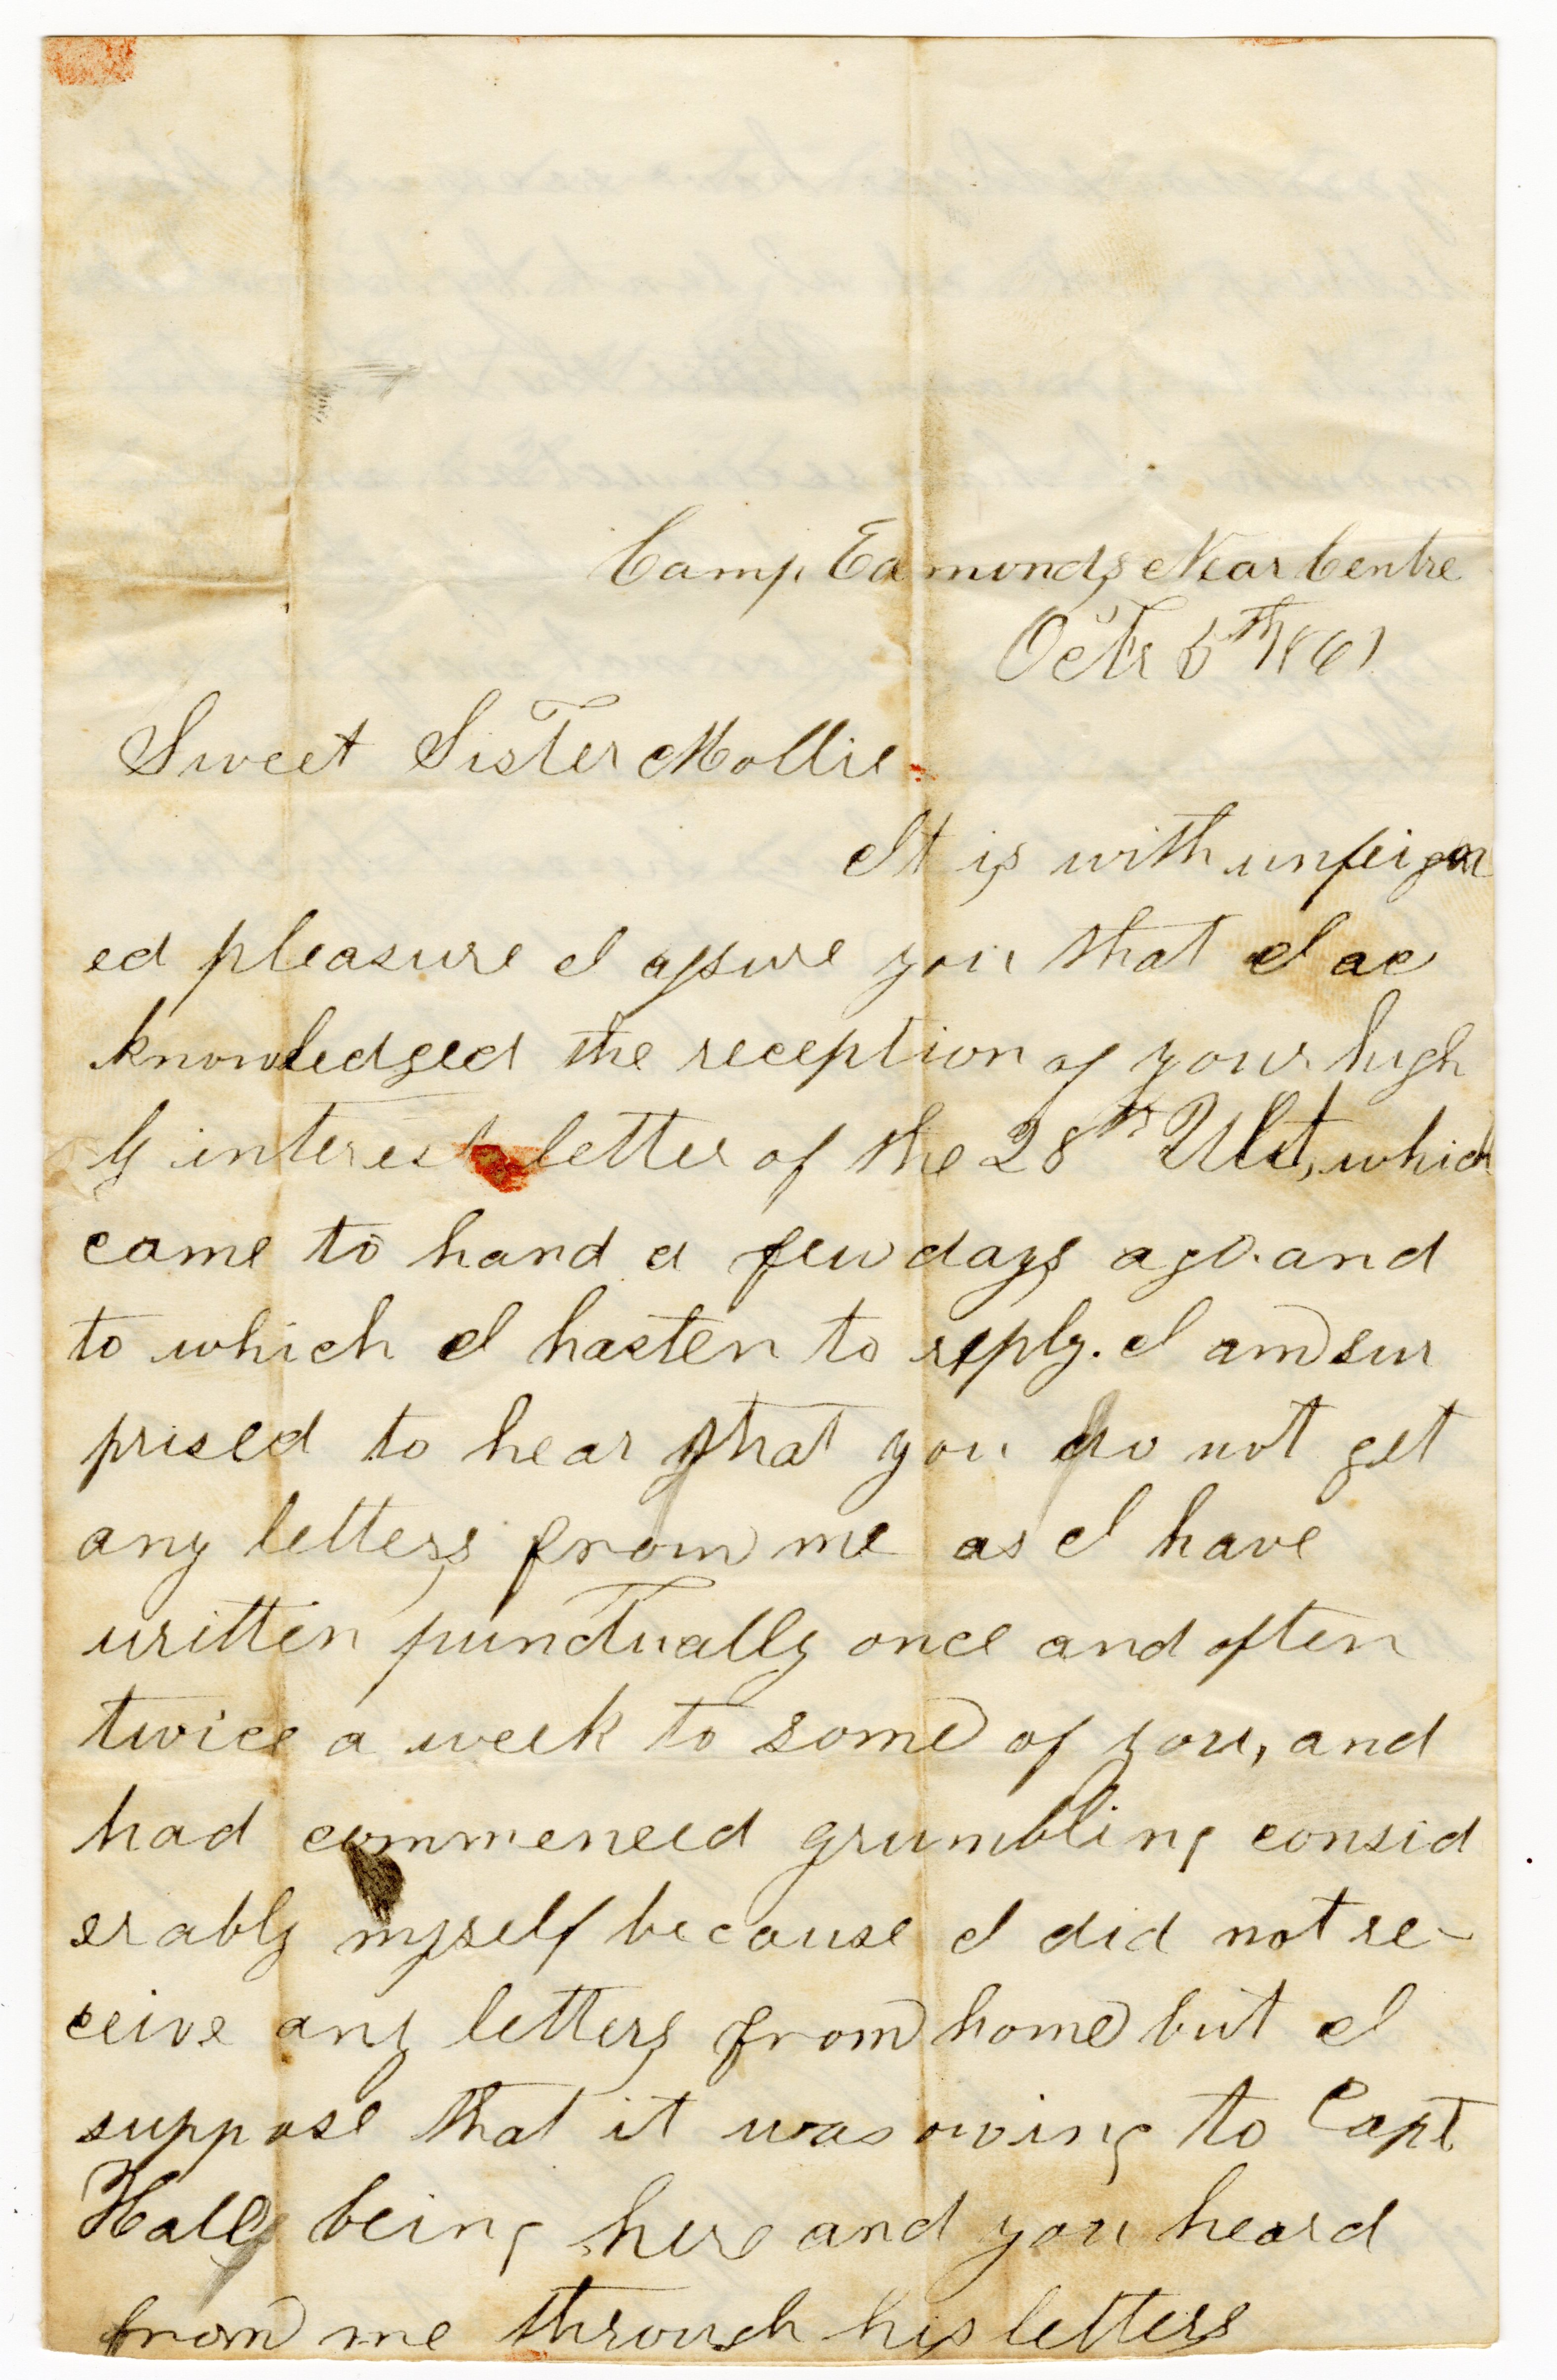 Camp Edmonds Near Centre
Octr 5th 1861
Sweet Sister Mollie
It is with unfeign
ed pleasure I assure you that I ac
knowledged the reception of your high
ly interest letter of the 28th Ult, which
came to hand a few days ago. and
to which I hasten to reply. I am sur
prised to hear that you do not get
any letters from me as I have
written punctually once and often
twice a week to some of you, and
had commenced grumbling consid
erably myself because I did not re-
ceive any letters from home but I
suppose that it was owing to Capt
Halls being here and you heard
from me through his letters